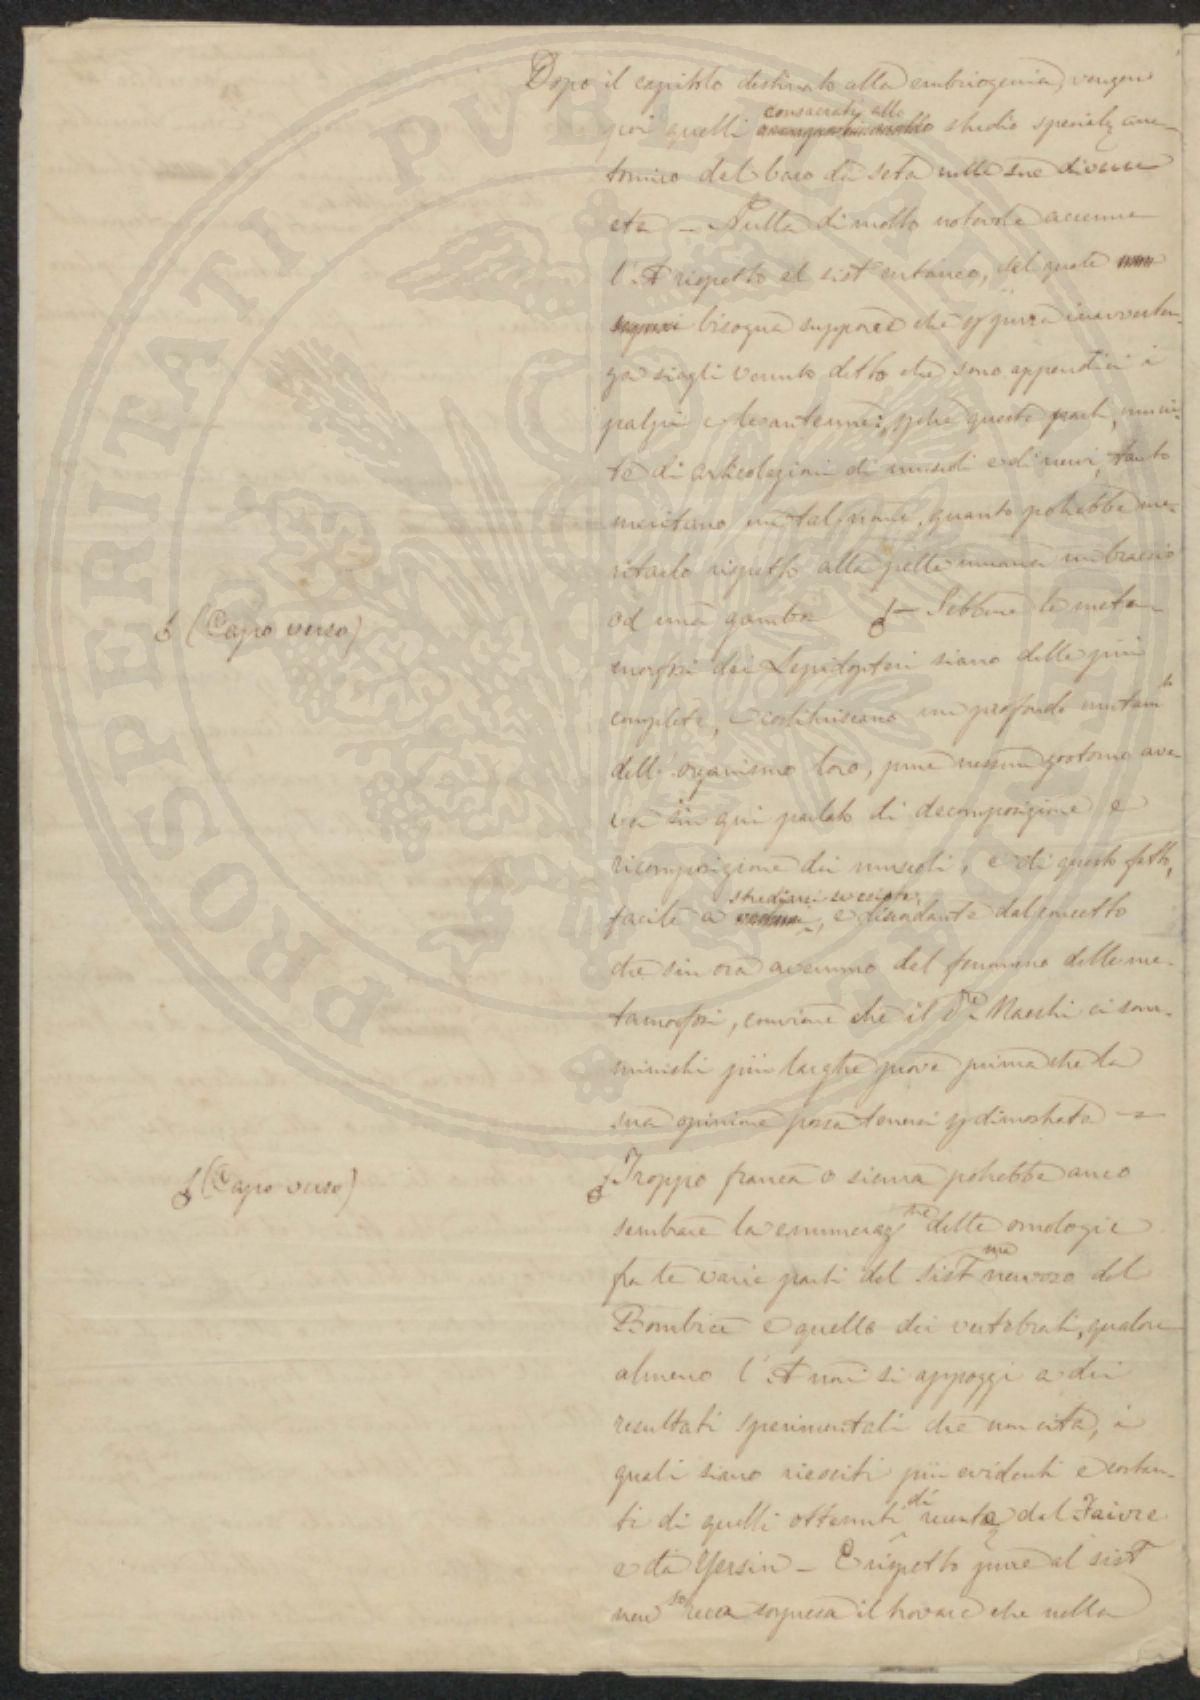 Dopo il capitolo destinato alla embriogenia, vengon
poi quelli consacrati allo studio speciale ana-
tomico del baco da seta nelle sue diverse
età – Nulla di molto notevole accenna
l'A rispetto al sist cutaneo, del quale
bisogna supporre che p pura inavverten-
za siagli venuto detto che sono appendici i
palpi e le antenne; pchè queste parti, muni-
te di articolazioni di muscoli e di nervi, tanto
meritano un tal nome, quanto potrebbe me-
ritarlo rispetto alla pelle umana un braccio
od una gamba – Sebbene le meta-
§ (Capo verso)
morfosi dei Lepidopteri siano delle più
complete, e costituiscano un profondo mutam to
dell'organismo loro, pure nessun zootomo ave-
va sin qui parlato di decomposizione e
ricomposizione dei muscoli, e di questo fatto,
facile a studiarsi se esiste, e discordante dal concetto
che sin ora avemmo del fenomeno delle me-
tamorfosi, conviene che il D.re Maestri ci som-
ministri più larghe prove prima che la
sua opinione possa tenersi p dimostrata –
§ (Capo verso)
Troppo franca o sicura potrebbe anco
sembrare la enumeraz ne delle omologie
fra le varie parti del sist ma nervoso del
Bombice e quello dei vertebrati, qualora
almeno l'A non si appoggi a dei
resultati sperimentali che non cita, i
quali siano riesciti più evidenti e costan-
ti di quelli ottenuti di recente dal Faivre
e da Yersin – E rispetto pure al sist
nervo so reca sorpresa il trovare che nella